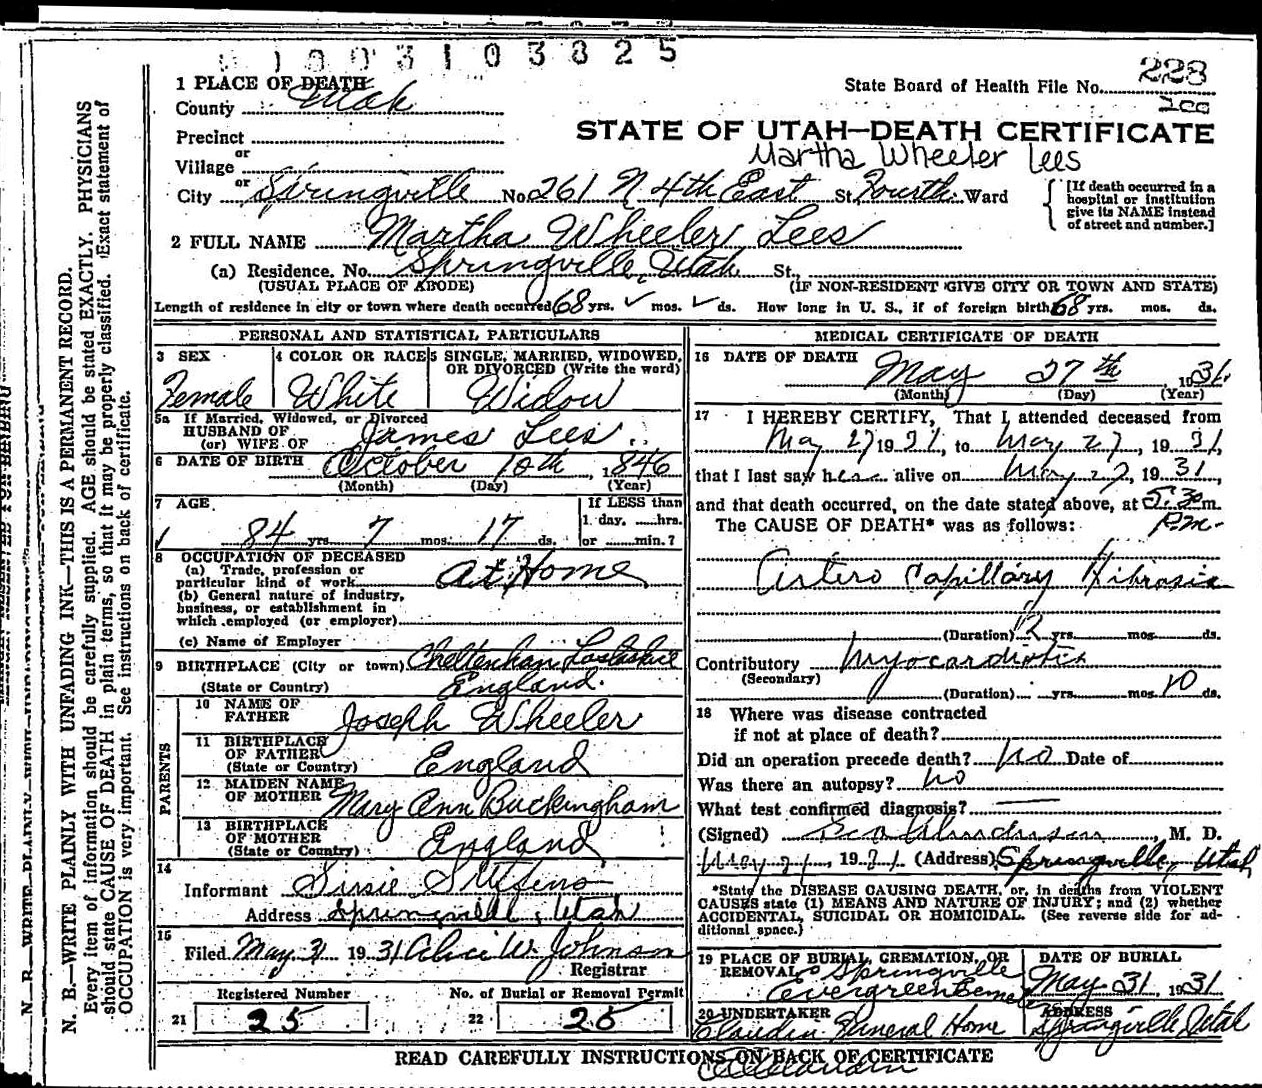 1003103825
1 PLACE OF DEATH
County Utah
State Board of Health File No. 228
200
Precinct
or
Village
STATE OF UTAH—DEATH CERTIFICATE
Martha Wheeler Lees
or
City Springville No. 261 N 4th East St. Fourth Ward
[If death occurred in a hospital or institution give its NAME instead of street and number.]
2 FULL NAME Martha Wheeler Lees
(a) Residence. No. Springville, Utah St.,
(USUAL PLACE OF ABODE) (IF NON-RESIDENT GIVE CITY OR TOWN AND STATE)
Length of residence in city or town where death occurred 68 yrs. ✓ mos. ✓ ds. How long in U. S., if of foreign birth 68 yrs. mos. ds.
PERSONAL AND STATISTICAL PARTICULARS
3 SEX
Female
4 COLOR OR RACE
White
5 SINGLE, MARRIED, WIDOWED,
OR DIVORCED (Write the word)
Widow
5a If Married, Widowed, or Divorced
HUSBAND OF
(or) WIFE OF James Lees
6 DATE OF BIRTH October 10th, 1846
(Month) (Day) (Year)
7 AGE
84 yrs 7 mos. 17 ds.
If LESS than
1 day, ....hrs.
or ....min.?
8 OCCUPATION OF DECEASED
(a) Trade, profession or
particular kind of work At Home
(b) General nature of industry,
business, or establishment in
which employed (or employer)
(c) Name of Employer
9 BIRTHPLACE (City or town) Cheltenham
(State or Country) England.
PARENTS
10 NAME OF
FATHER Joseph Wheeler
11 BIRTHPLACE
OF FATHER
(State or Country) England
12 MAIDEN NAME
OF MOTHER Mary Ann Buckingham
13 BIRTHPLACE
OF MOTHER
(State or Country) England
14
Informant Susie
Address Springville, Utah
15
Filed May 31 1931 Alice W. Johnson
Registrar
Registered Number
21 25
No. of Burial or Removal Permit
22 25
MEDICAL CERTIFICATE OF DEATH
16 DATE OF DEATH
May 27th, 1931.
(Month) (Day) (Year)
17 I HEREBY CERTIFY, That I attended deceased from
May 27 1931, to May 27, 1931,
that I last saw her alive on May 27, 1931,
and that death occurred, on the date stated above, at 5:30 m.
The CAUSE OF DEATH* was as follows: P.m.
Artero Capillary Fibrosis
(Duration) 12 yrs. mos. ds.
Contributory Myocardiotis
(Secondary)
(Duration) yrs. mos. 10 ds.
18 Where was disease contracted
if not at place of death?
Did an operation precede death? No Date of
Was there an autopsy? No
What test confirmed diagnosis? —
(Signed) , M. D.
May 1931 (Address) Springville, Utah
*State the DISEASE CAUSING DEATH, or, in deaths from VIOLENT
CAUSES state (1) MEANS AND NATURE OF INJURY; and (2) whether
ACCIDENTAL, SUICIDAL OR HOMICIDAL. (See reverse side for ad-
ditional space.)
19 PLACE OF BURIAL, CREMATION, OR
REMOVAL Springville
Evergreen Cemetery
DATE OF BURIAL
May 31, 1931
20 UNDERTAKER
Claudin Funeral Home
ADDRESS
Springville Utah
READ CAREFULLY INSTRUCTIONS ON BACK OF CERTIFICATE
N. B.—WRITE PLAINLY WITH UNFADING INK—THIS IS A PERMANENT RECORD.
Every item of information should be carefully supplied. AGE should be stated EXACTLY. PHYSICIANS
should state CAUSE OF DEATH in plain terms, so that it may be properly classified. Exact statement of
OCCUPATION is very important. See instructions on back of certificate.